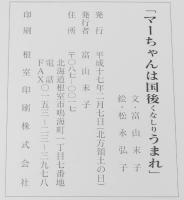 「マーちゃんは国後(くなしり)うまれ」
文・富山末子
絵・松永弘子
発行　平成十七年二月七日(北方領土の日)
発行者　富山末子
住所　〒〇八七-〇〇一七
北海道根室市鳴海町一丁目七番地
電話
FAX〇一五三-二三-三九七八
印刷　根室印刷株式会社